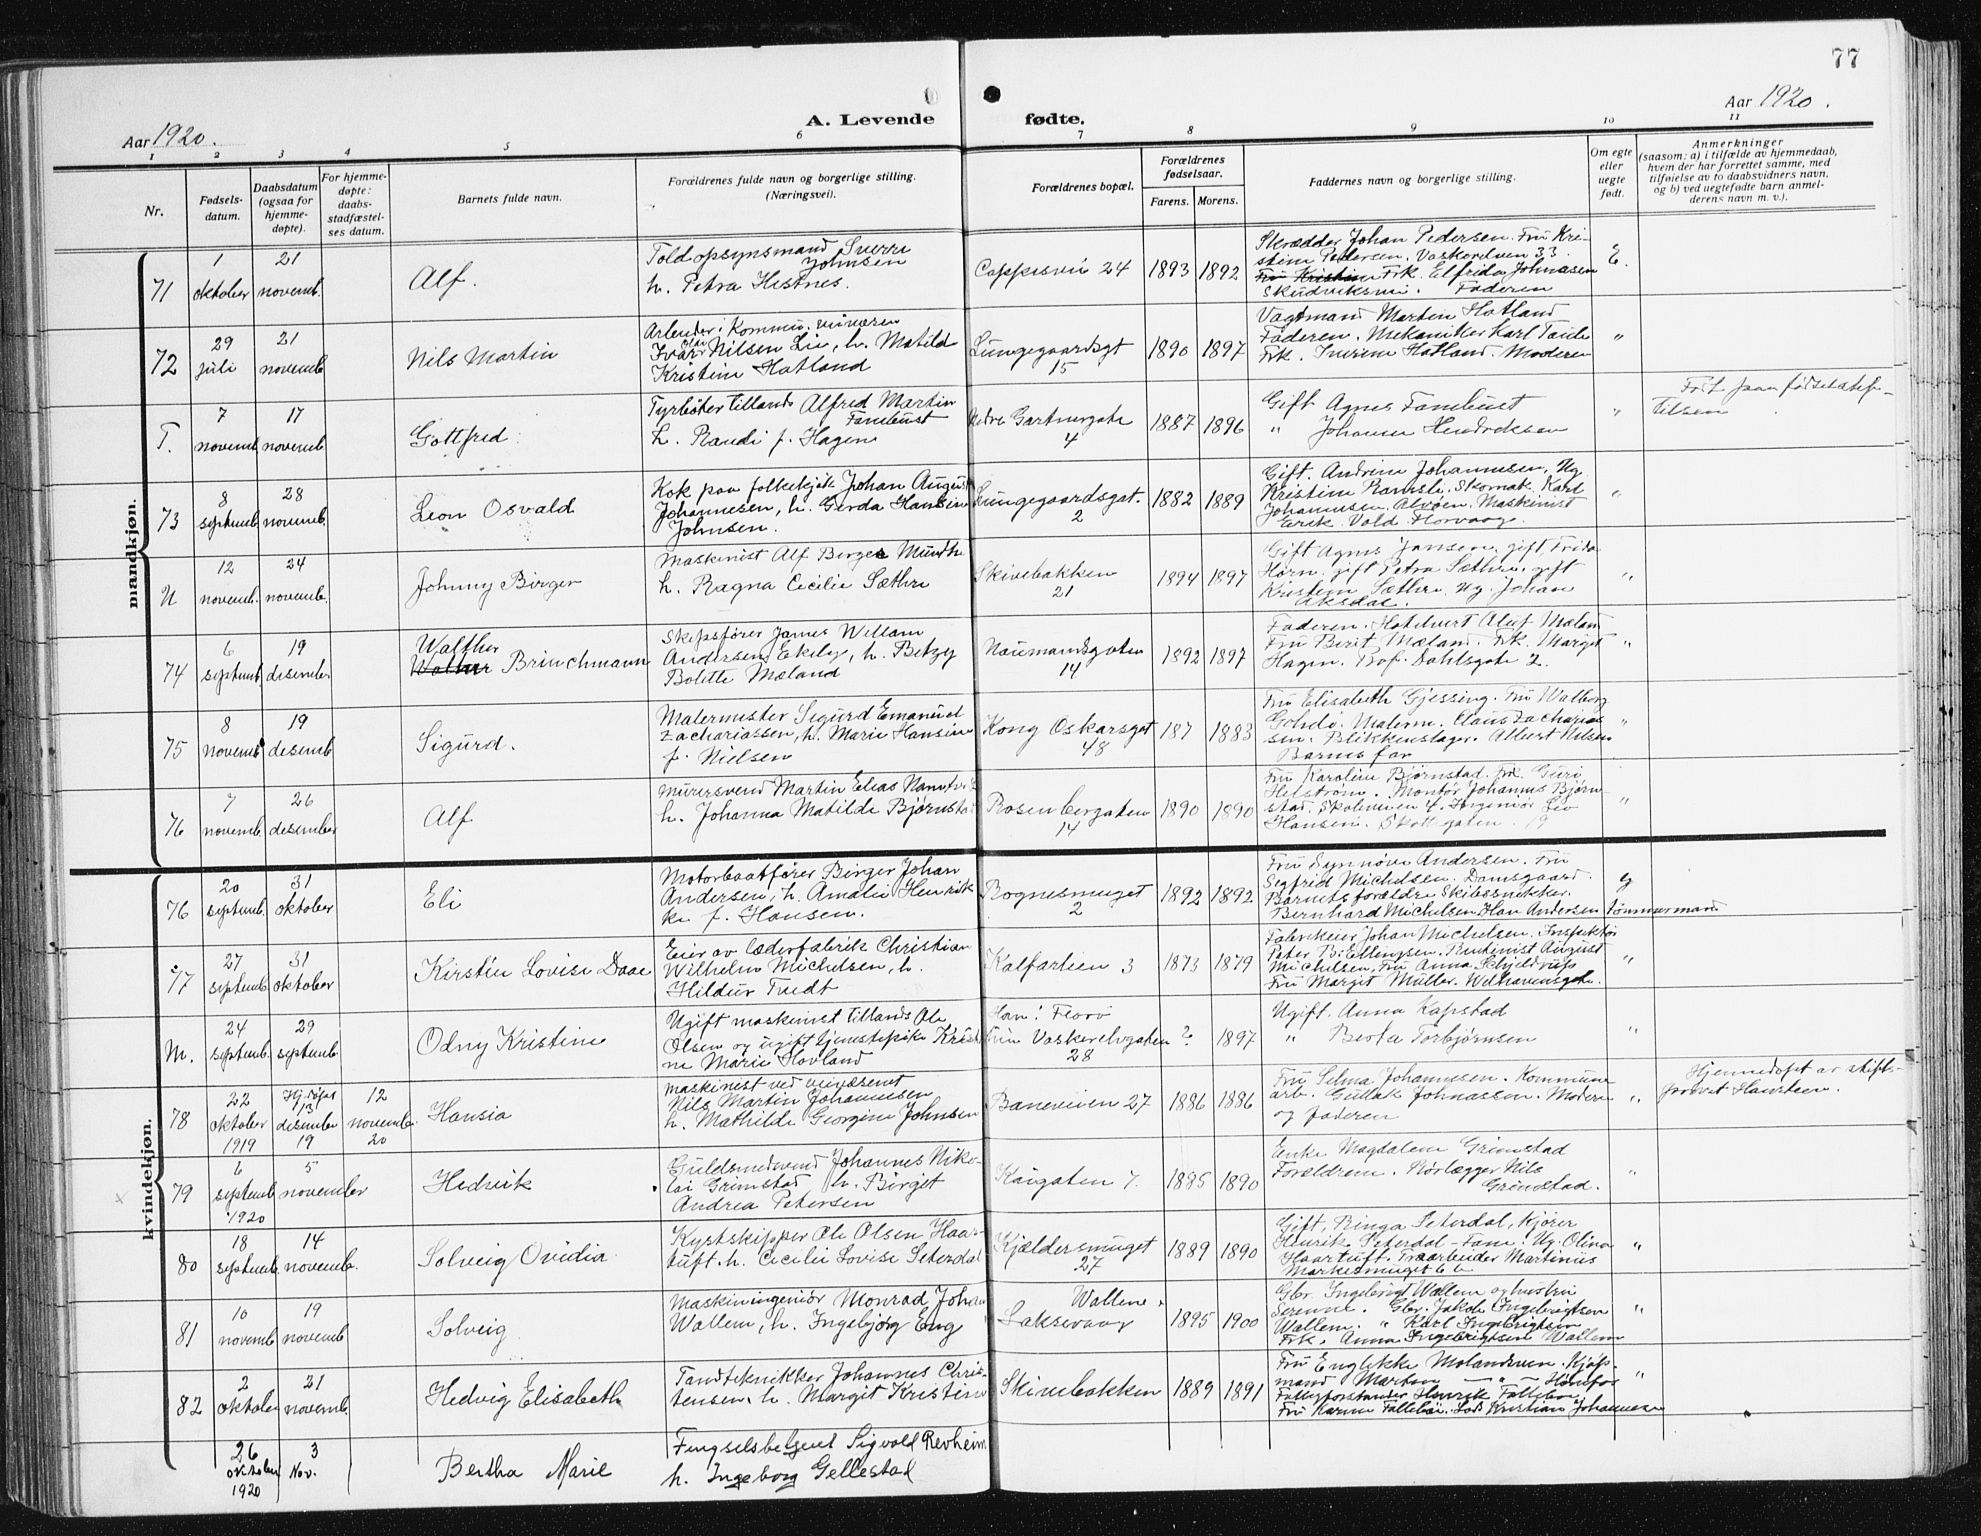 77
Aar 1920.
A. Levende fødte.
Aar 1920.
1 2 3 4 5 6 7 8 9 10 11
Nr.
Fødsels-
datum.
Daabsdatum
(ogsaa for
hjemme-
døpte).
For hjemme-
døpte:
daabs-
stadfæstel-
ses datum.
Barnets fulde navn.
Forældrenes fulde navn og borgerlige stilling.
(Næringsvei).
Forældrenes bopæl.
Forældrenes
fødselsaar.
Farens. Morens.
Faddernes navn og borgerlige stilling.
Om egte
eller
uegte
født.
Anmerkninger
(saasom: a) i tilfælde av hjemmedaab,
hvem der har forrettet samme, med
tilføielse av to daabsvidners navn,
og b) ved uegtefødte barn anmel-
derens navn m. v.).
mandkjøn.
71
1 oktober
21 novemb.
Alf.
Toldopsynsmand Sverre
Johnsen
h. Petra Hestnes.
Cappesvei 24
1893 1892
Skrædder Johan Pedersen. Fru Kri-
stine Pedersen. Vaskerelven 33.
Frk. Elfrida Johnasen
Skudviksvei. Faderen
E.
72
29 juli
21 novemb
Nils Martin
Arbeider i Kommu. veivæsen
Ivar Olai Nilsen Lie, h. Matild
Kristine Hatland
Lungegaardsgt
15
1890 1897
Vagtmand Martin Hatland
Faderen. Mekaniker Karl Taule
Frk. Hatland. Moderen
"
T.
7 novemb
17 novemb
Gottfred
Fyrbøter tillands Alfred Martin
h. Randi f. Hagen
Nedre Gartnergate
4
1887 1896
Gift Agnes
" Johanne Hendreksen
"
73
8 septemb.
28 novemb.
Leon Osvald
Kok paa folkekjøk. Johan August
Johannesen, h. Gerda Hansine
Johnsen.
Lungegaardsgat.
2
1882 1889
Gift. Andrine Johannesen, Ug
Kristine Ramsli. Skomak. Karl
Johannesen, Alvøen. Maskinist
Erik Vold Florvaag.
"
U
12 novemb.
24 novemb.
Johnny Birger
Maskinist Alf Birger Munthe
h. Ragna Cecilie Sæthre
Skivebakken
21
1894 1897
Gift Agnes Jansen, gift Frida
Horn, gift Petra Sæthre, gift
Kristine Sæthre. Ug. Johan
Aksdal.
"
74
6 septemb.
19 desember
Walther
Brinchmann
Skipsfører James William
Andersen Ekely, h. Betzy
Bolette Mæland
Naumannsgaten
14
1892 1897
Faderen. Hotelvert Aluf Mæland
Fru Berit Mæland. Frk. Margit
Hagen. Prof. Dahlsgate 2.
"
75
8 novemb
19 desemb.
Sigurd.
Malermester Sigurd Emanuel
Zachariassen, h. Marie Hansine
f. Nielsen
Kong Oskarsgat
48
187 1883
Fru Elisabeth Gjessing. Fru Walborg
Malerm. Claus Zacharias
sen. Blikkenslager. Albert Nilsen
Barnets far
"
76
7 novemb.
26 desember
Alf
Murersvend Martin Elias
h. Johanna Matilde Bjørnstad
Rosenbergaten
14
1890 1890
Fru Karoline Bjørnstad. Frk. Guri
Helstrøm. Montør Johannes Bjørn
stad. Skoleveien 4. Ingeniør Leo
Hansen. Skottegaten 19
"
kvindekjøn.
76
20 septemb.
31 oktober
Eli
Motorbaatfører Birger Johan
Andersen, h. Amalie Henrik
ke f. Hansen.
Rognesmuget
2
1892 1892
Fru Synnøve Andersen. Fru
Segfrid Michelsen. Damsgaard.
Barnets forældre Skibssnekker.
Bernhard Michelsen Han Andersen tømmermand
77
27 septemb.
31 oktober
Kirstin Lovise Daae
Eier av læderfabrik Christian
Wilhelm Michelsen, h.
Hildur Tvedt
Kalfarlien 3
1873 1879
Fabrikeier Johan Michelsen. Inspektør
Peter B. Ellingsen. Bentinist August
Michelsen, Fru Anna Schjelderup
Fru Margit Müller. Welhavensgate.
"
M.
24 septemb.
29 septemb.
Odny Kristine
Ugift maskinist tillands Ole
Olsen og ugift tjenestepike Kristi
ne Marie Hovland
Han: Florø
Hun Vaskerelvgaten
28
? 1897
Ugift. Anna Kapstad
" Berta Torbjørnsen
"
78
22 oktober 1919
Hj.døpt 13 desember 19
12 novemb. 20
Hansia
Maskinist ved veivæsenet
Nils Martin Johannesen
h. Mathilde Georgine Johnsen
Baneveien 27
1886 1886
Fru Selma Johannesen. Kommune
arb. Gullak Johnassen. Moderen
og faderen
"
Hjemmedøpt av stifts-
provst Hansteen.
79
6 septemb 1920
5 november
Hedvik
Guldsmedsvend Johannes Niko-
lai Grimstad h. Birget
Andrea Petersen
Kaigaten 7.
1885 1890
Enke Magdalene Grimstad
Forældrene. Rørlægger Nils
Grimstad.
"
80
18 septemb.
14 novemb.
Solveig Ovidia
Kystskipper Ole Olsen Haar-
tuft. h. Cecilie Lovise Seterdal
Kjældersmuget
27
1889 1890
Gift, Ringa Seterdal, Kjører
Henrik Seterdal - Fane. Ug. Olina
Haartuft. Træarbeider Martinus
Markesmuget 6 b
"
81
10 novemb
19 novemb
Solveig
Maskiningeniør Monrad Johan
Wallem, h. Ingebjørg Eng
Wallene.
Laksevaag
1895 1900
Gbr. Ingebrigt Wallem og hustru
Serenne. Gbr. Jakob Ingebrigtsen
Wallem. " Karl Ingebrigtsen
Frk. Anna Ingebrigtsen Wallem
"
82
2 oktober
21 novemb.
Hedvig Elisabeth
Tandteknikker Johannes Chris-
tensen, h. Margit Kristine
Skivebakken
1889 1891
Fru Kjøp-
mand Morten — " — Hønefos
Henrik Falleboe,
Fru Karine Falleboe. Johannesen
"
26 oktober 1920
3 Nov.
Bertha Marie
Fengselsbetjent Sigvald Revheim
h. Ingeborg Gellestad